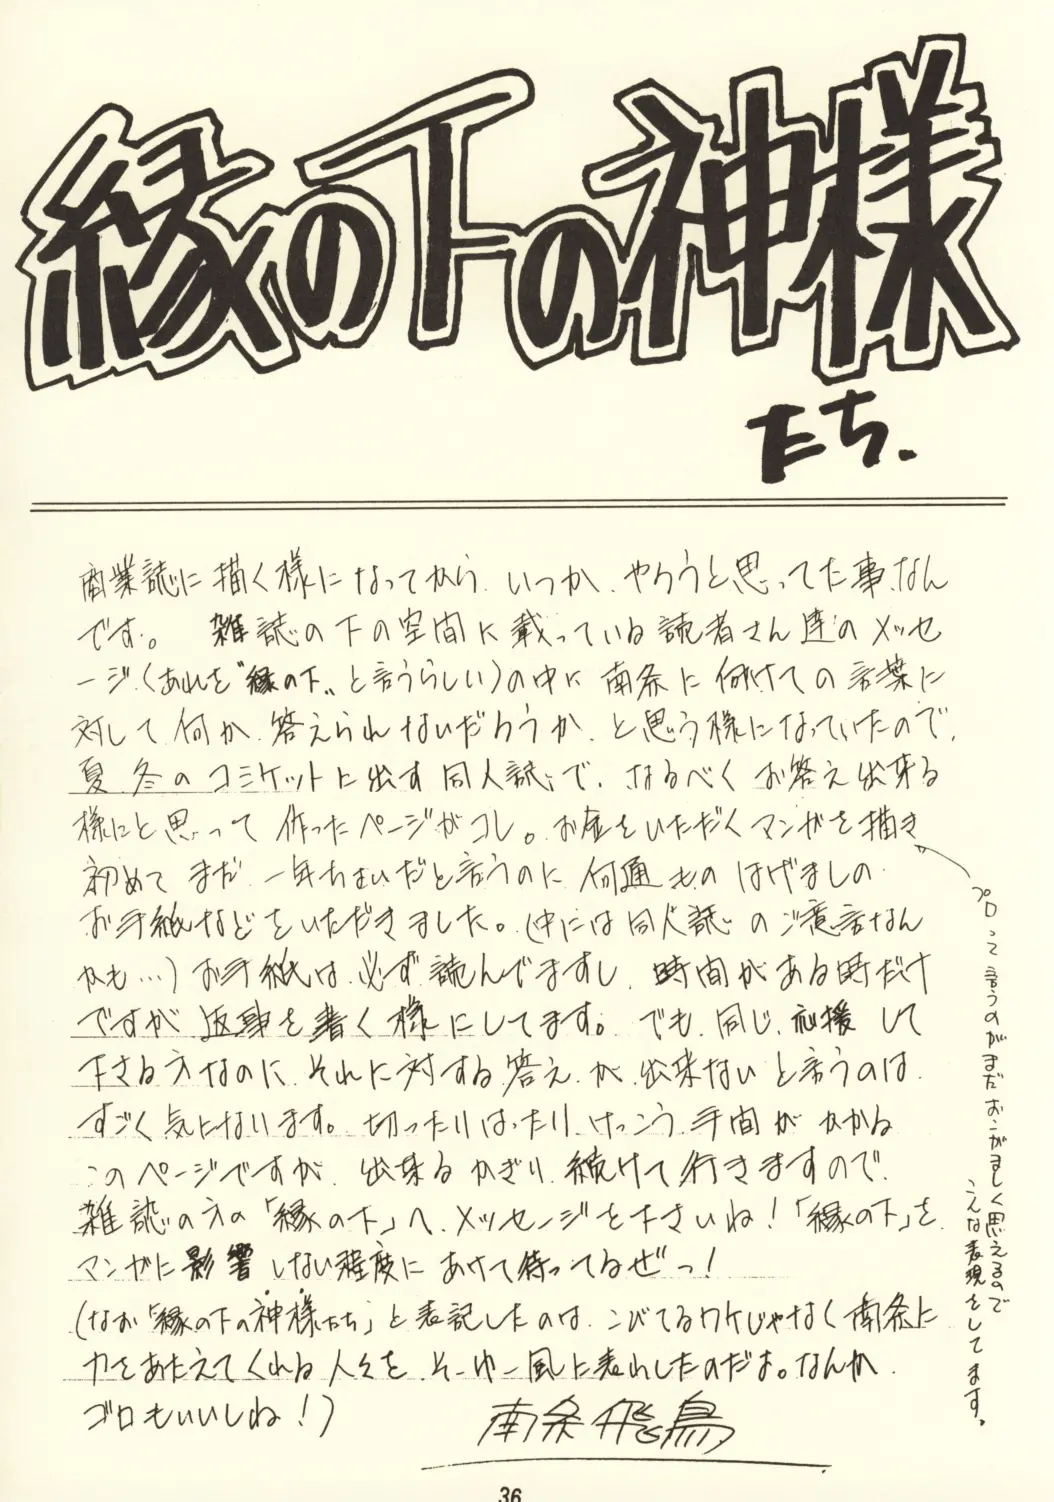 縁の下の神様
たち.
商業誌に描く様になってから、いつか、やろうと思ってた事なん
です。 雑誌の下の空間に載っている読者さん達のメッセ
ージ(あれを"縁の下"と言うらしい)の中に南条に向けての言葉に
対して何か答えられないだろうか、と思う様になっていたので、
夏、冬のコミケットに出す同人誌で、なるべくお答え出来る
様にと思って作ったページがコレ。お金をいただくマンガを描き
初めてまだ一年ちょいだと言うのに何通ものはげましの
お手紙などをいただきました。(中には同人誌のご意見なん
かも…)お手紙は必ず読んでますし、時間がある時だけ
ですが返事を書く様にしてます。でも、同じ、応援して
下さる方なのに、それに対する答えが出来ないと言うのは
すごく気になります。切ったりはったり、けっこう手間がかかる
このページですが、出来るかぎり続けて行きますので、
雑誌の方の「縁の下」へ、メッセージを下さいね!「縁の下」を
マンガに影響しない程度にあけて待ってるぜっ!
(なお「縁の下の神様たち」と表記したのは、こびてるワケじゃなく南条に
力をあたえてくれる人々を、そーゆー風に表わしたのだよ。なんか
ゴロもいいしね!)
プロって言うのがまだおこがましく思えるので
こんな表現をしてます。
南条飛鳥
36